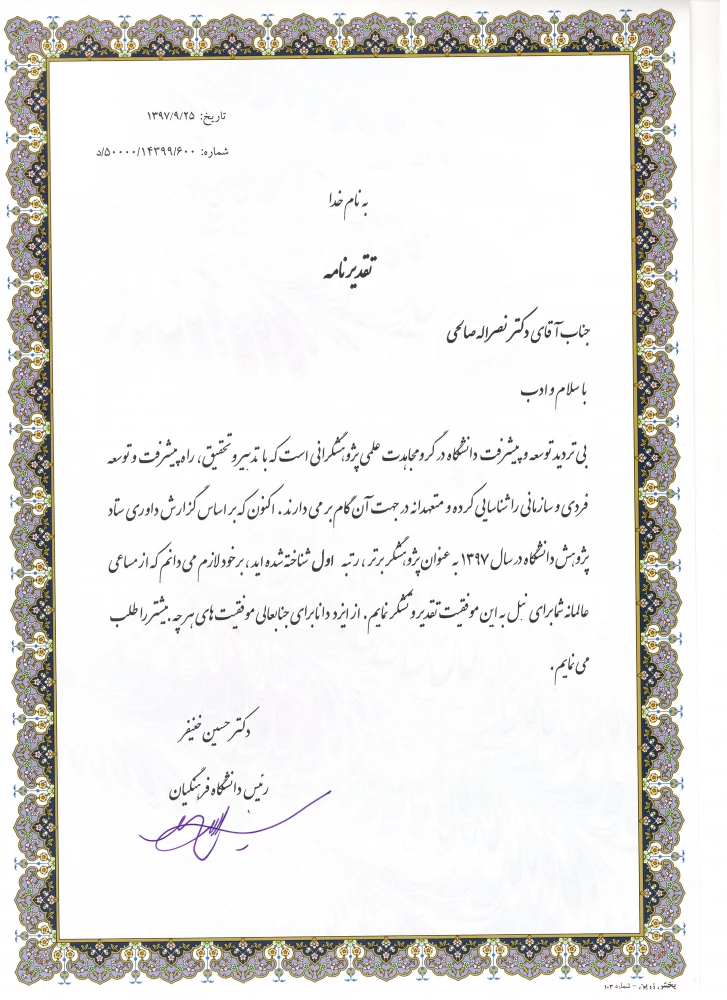 تاریخ: ۱۳۹۷/۹/۲۵
شماره: ۵۰۰۰۰/۱۴۳۹۹/۶۰۰/د
به نام خدا
تقدیرنامه
جناب آقای دکتر نصراله صالحی
با سلام و ادب
بی تردید توسعه و پیشرفت دانشگاه در گرو مجاهدت علمی پژوهشگرانی است که با تدبیر و تحقیق، راه پیشرفت و توسعه
فردی و سازمانی را شناسایی کرده و متعهدانه در جهت آن گام بر می دارند. اکنون که بر اساس گزارش داوری ستاد
پژوهش دانشگاه در سال ۱۳۹۷ به عنوان پژوهشگر برتر، رتبه اول شناخته شده اید، بر خود لازم می دانم که از مساعی
عالمانه شما برای نیل به این موفقیت تقدیر و تشکر نمایم. از ایزد دانا برای جنابعالی موفقیت های هرچه بیشتر را طلب
می نمایم.
دکتر حسین خنیفر
رئیس دانشگاه فرهنگیان
پخش زرین - شماره ۱۰۳